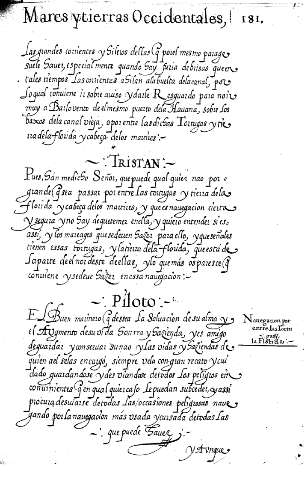 Mares y tierras Occidentales, 181.
las grandes corrientes y Silvos dellas q̃ por el mesmo parage
suele hauer, especialmente quando hay furia de brisas que en
tales tiempos las corrientes a la buelta de la canal, por
lo qual conviene ir sobre auiso y darle Resguardo para no ir
muy a Barlovento de el mesmo puerto de la Hauana, sobre los
baxos de la canal vieja, o por entre las dichas Tortugas y tie
rra de la florida y cabeça de los martires.
TRISTAN.
Pues, han me dicho Señor, que puede qual quier nao por
grande q̃ sea passar por entre las tortugas y tierra de la
florida y cabeça de los martires, y que es navegacion cierta
y segura y no hay de que temer en ella, y quiero entender si es
assi, y los mareages que se deuen hazer para ello, y que señales
tienen essas tortugas, y la tierra de la florida, que está de
la parte de el nordeste de ellas, y lo que más os pareste q̃
conviene y se deue hazer en essa navegacion.
Piloto
El Buen marinero q̃ dessea la Saluacion de su alma y
el Augmento de su onrra y hazienda, y es amigo
de guardar y conseruar su nao y las vidas y haziendas de
quien a el se las encargó, siempre vela con gran recato y cui
dado guardandose y desviandose de todos los peligros en
convinientes q̃ en qualquier caso le puedan subceder, y assi
procura desuiarse de todas las ocasiones peligrosas naue
gando por la navegacion más usada y cursada de todas las
que puede hauer
Navegacion por
entre las Tortu
gas y
la Florida.
y Aunque